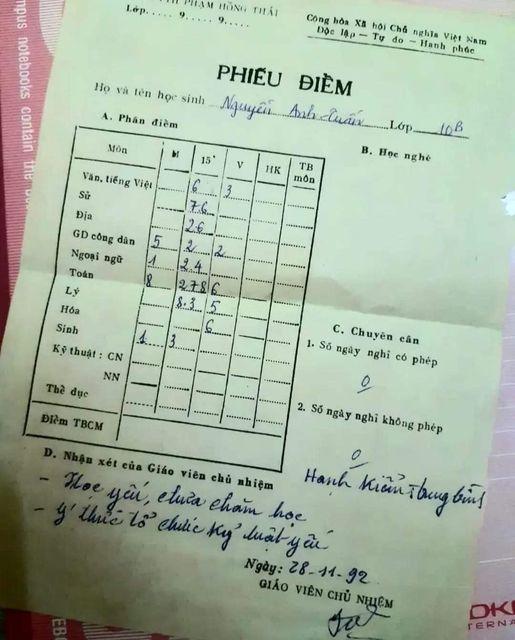 PHẠM HỒNG THÁI
Lớp.....9....9....
Cộng hòa Xã hội Chủ nghĩa Việt Nam
Độc lập — Tự do — Hạnh phúc
PHIẾU ĐIỂM
Họ và tên học sinh Nguyễn Anh Tuấn Lớp 10B
A. Phần điểm
B. Học nghề
Môn M 15' V HK TB môn
Văn, tiếng Việt 6 3
Sử 7 6
Địa 2 6
GD công dân 5 2 2
Ngoại ngữ 1 2 4
Toán 8 2 7 8 6
Lý 8.3 5
Hóa 6
Sinh 1 3
Kỹ thuật : CN
NN
Thể dục
Điểm TBCM
C. Chuyên cần
1. Số ngày nghỉ có phép
0
2. Số ngày nghỉ không phép
0
Hạnh Kiểm Trung bình
D. Nhận xét của Giáo viên chủ nhiệm
- Học yếu, chưa chăm học
- ý thức tổ chức kỷ luật yếu
Ngày: 28-11-92
GIÁO VIÊN CHỦ NHIỆM
mpus notebooks contain the